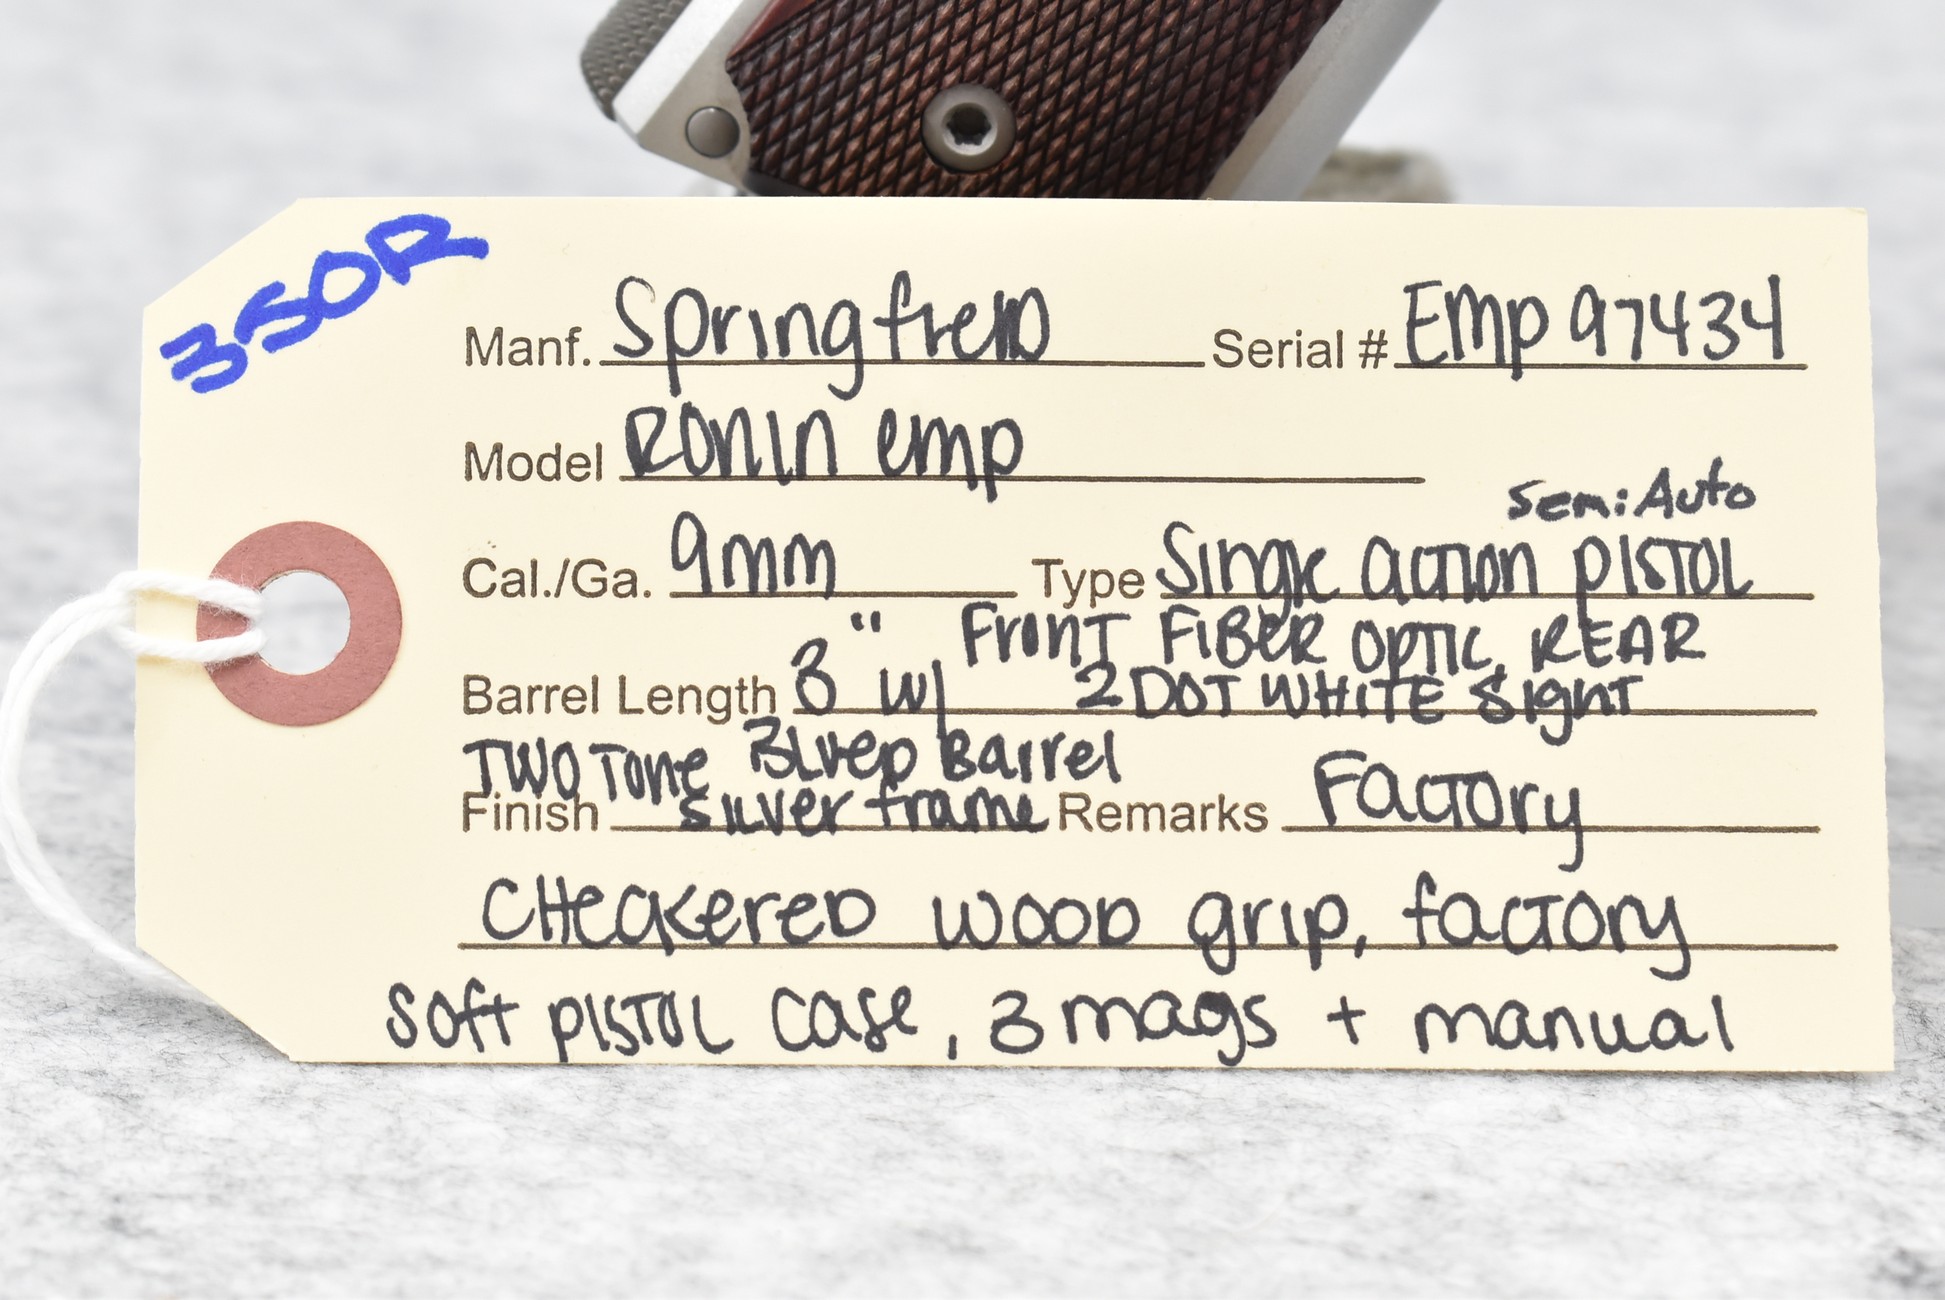 350R
Manf. Springfield Serial # Emp 97434
Model Ronin emp
Semi Auto
Cal./Ga. 9mm Type Single action pistol
Front Fiber optic, REAR
Barrel Length 3" w/ 2 DOT WHITE Sight
Two Tone Blued Barrel
Finish silver frame Remarks Factory
CHeckered wood grip, factory
Soft pistol case, 3 mags + manual